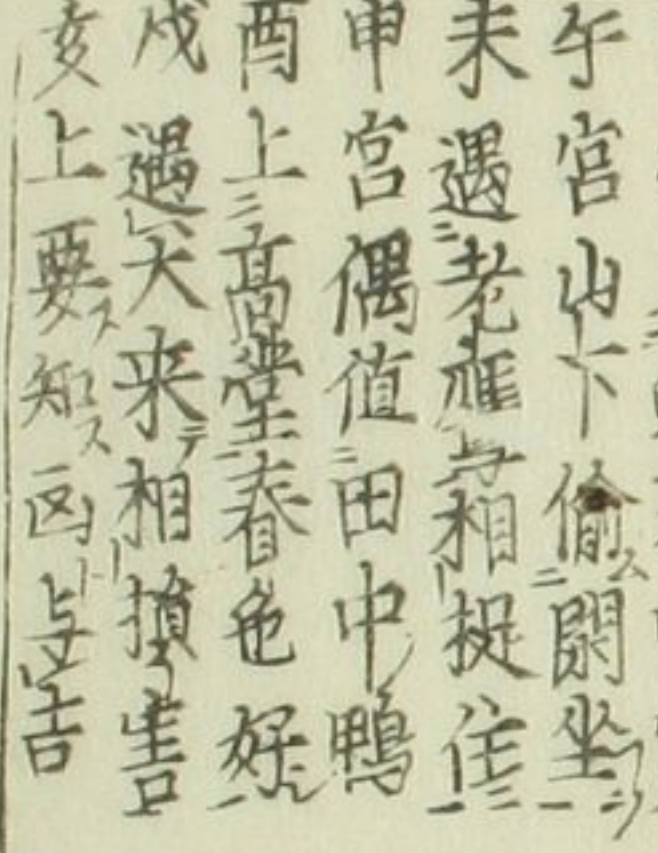 午宮山下偸閑坐
未遇老鷹相捉住
申宮偶値田中鴨
酉上高堂春色好
戌遇犬来相損害
亥上要知凶与吉